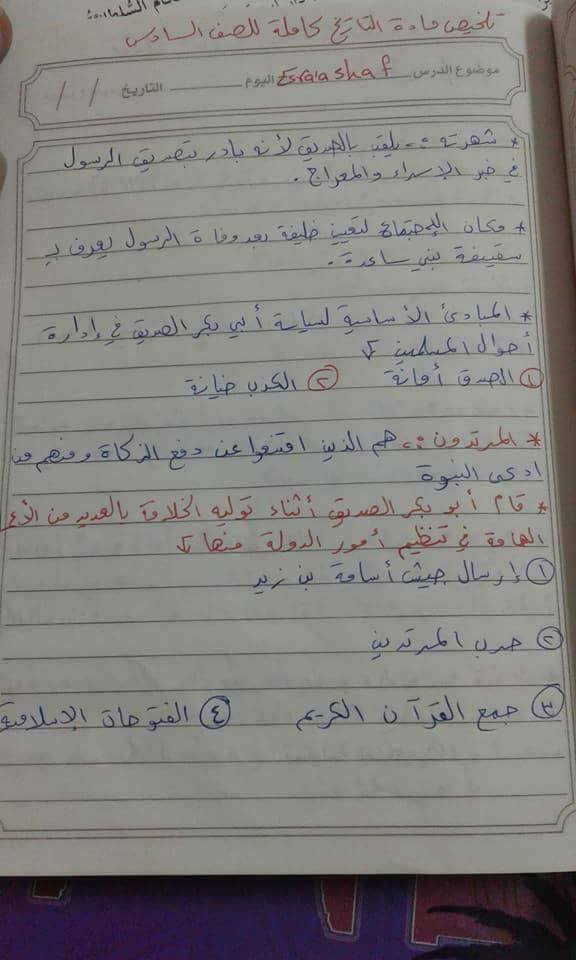 تلخيص مادة التاريخ كاملة للصف السادس
موضوع الدرس Esraa shaf اليوم التاريخ / /
* شهرته :- يلقب بالصديق لأنه بادر بتصديق الرسول
في خبر الإسراء والمعراج .
* مكان الإجتماع لتعين خليفة بعد وفاة الرسول يعرف بـ
سقيفة بني ساعدة .
* المبادئ الأساسية لسياسة أبي بكر الصديق في إدارة
أحوال المسلمين
① الصدق أمانة ② الكذب خيانة
* المرتدون :- هم الذين امتنعوا عن دفع الزكاة ومنهم من
ادعى النبوة
* قام أبو بكر الصديق أثناء توليه الخلافة بالعديد من
الهامة في تنظيم أمور الدولة منها
① إرسال جيش أسامة بن زيد
② حرب المرتدين
③ جمع القرآن الكريم ④ الفتوحات الإسلامية